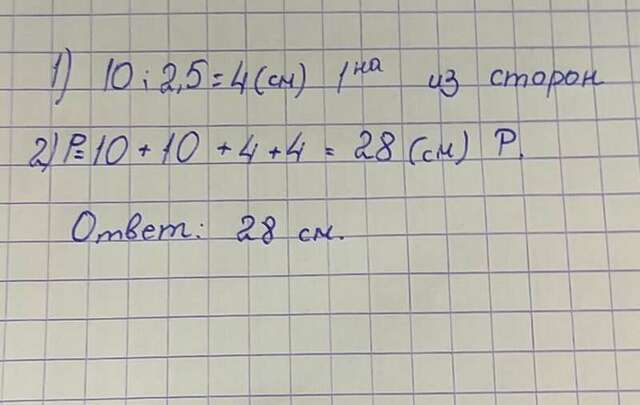 1) 10 : 2,5 = 4 (см) 1на из сторон
2) P = 10 + 10 + 4 + 4 = 28 (см) P.
Ответ: 28 см.